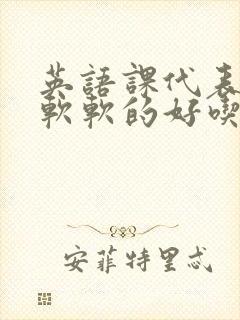 英語課代表
軟軟的好喫
安菲特里忒